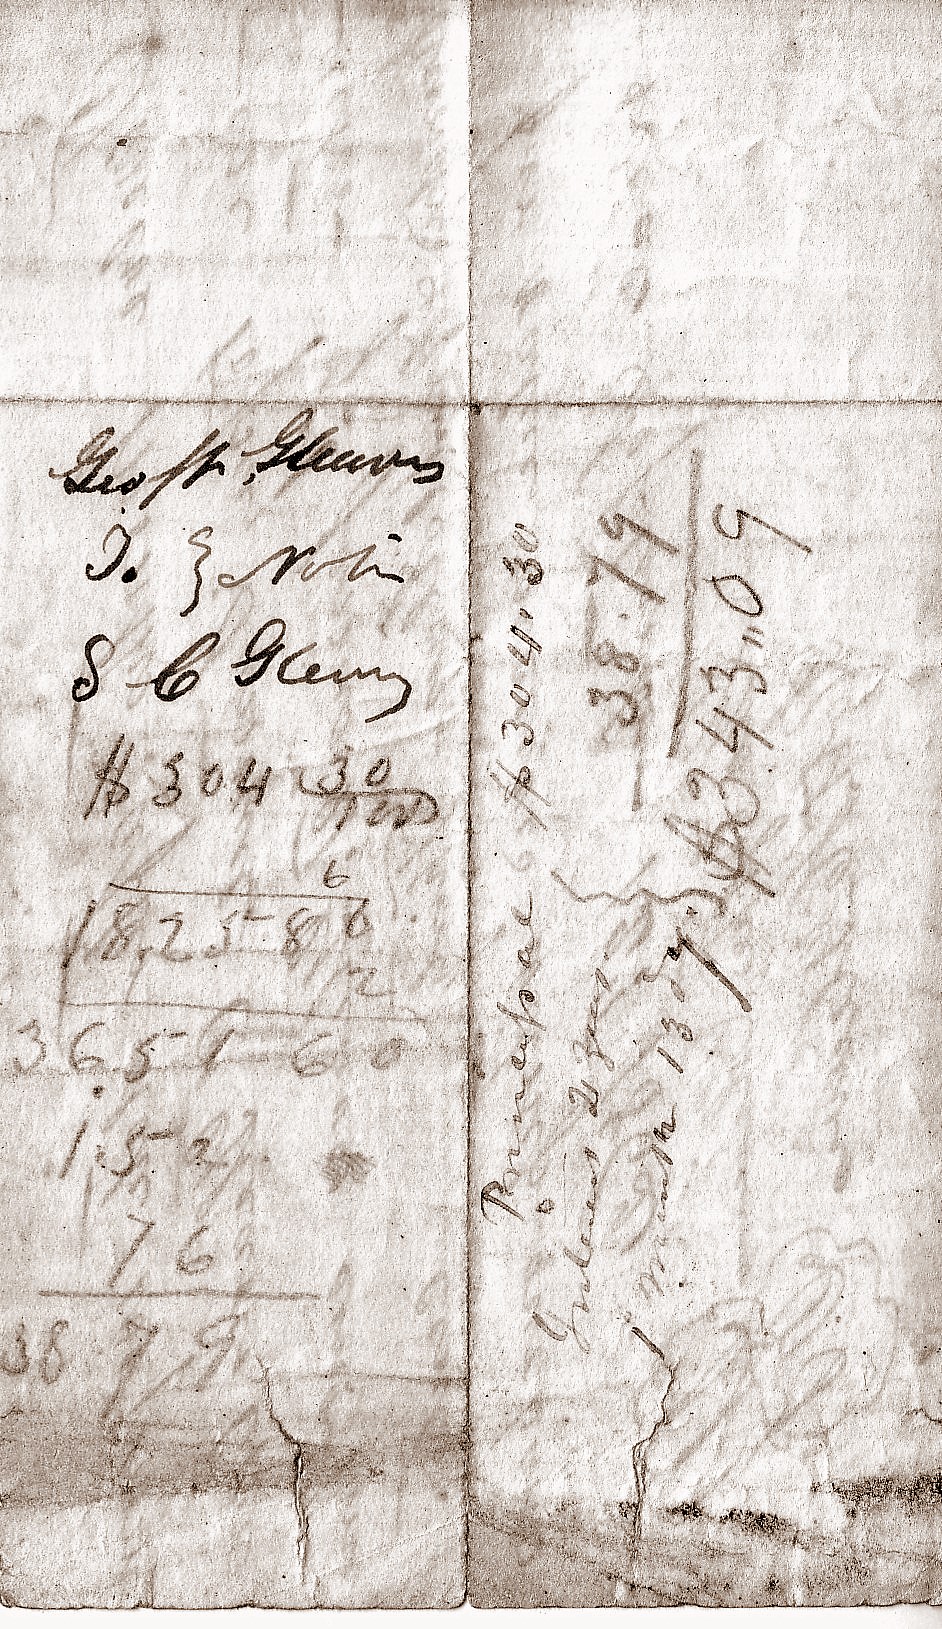 Geo W. Glenny
To } Note
S C Glenny
$304 30/100
6
18258 6
2
36516 0
1.52
76
38 79
Principal $304.30
Interest 2 yrs
1 month 13 dys } 38.79
$343.09